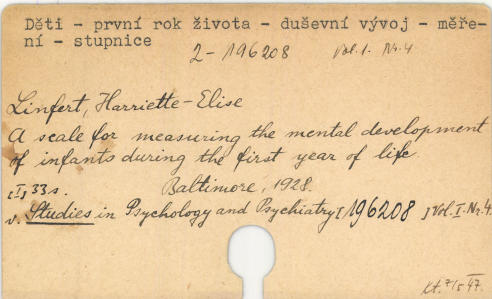 Děti - první rok života - duševní vývoj - měře-
ní - stupnice
2-196208 Vol.1. Nr.4
Linfert, Harriette-Elise
A scale for measuring the mental development
of infants during the first year of life.
[I] 33 s. Baltimore, 1928.
v. Studies in Psychology and Psychiatry [196208] Vol. I. Nr. 4.
Kt. 7/5 47.